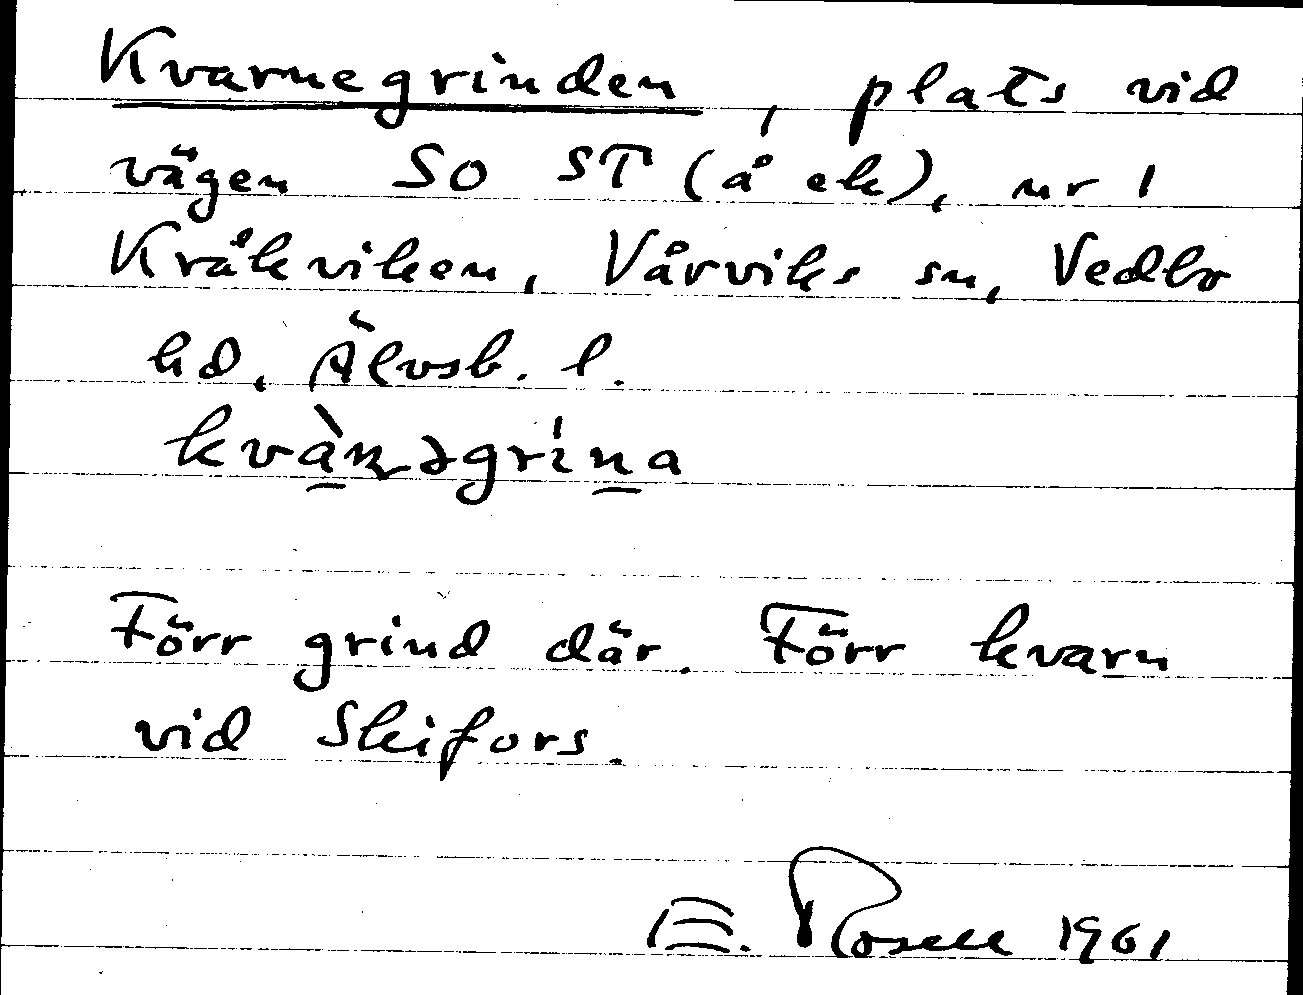 Kvarnegrinden, plats vid
vägen SO ST (å ek), nr 1
Kråkviken, Vårviks sn, Vedbo
hd, Älvsb. l.
kvà̱ɳəgrìṉa
Förr grind där. Förr kvarn
vid Skifors.
E. Rosell 1961